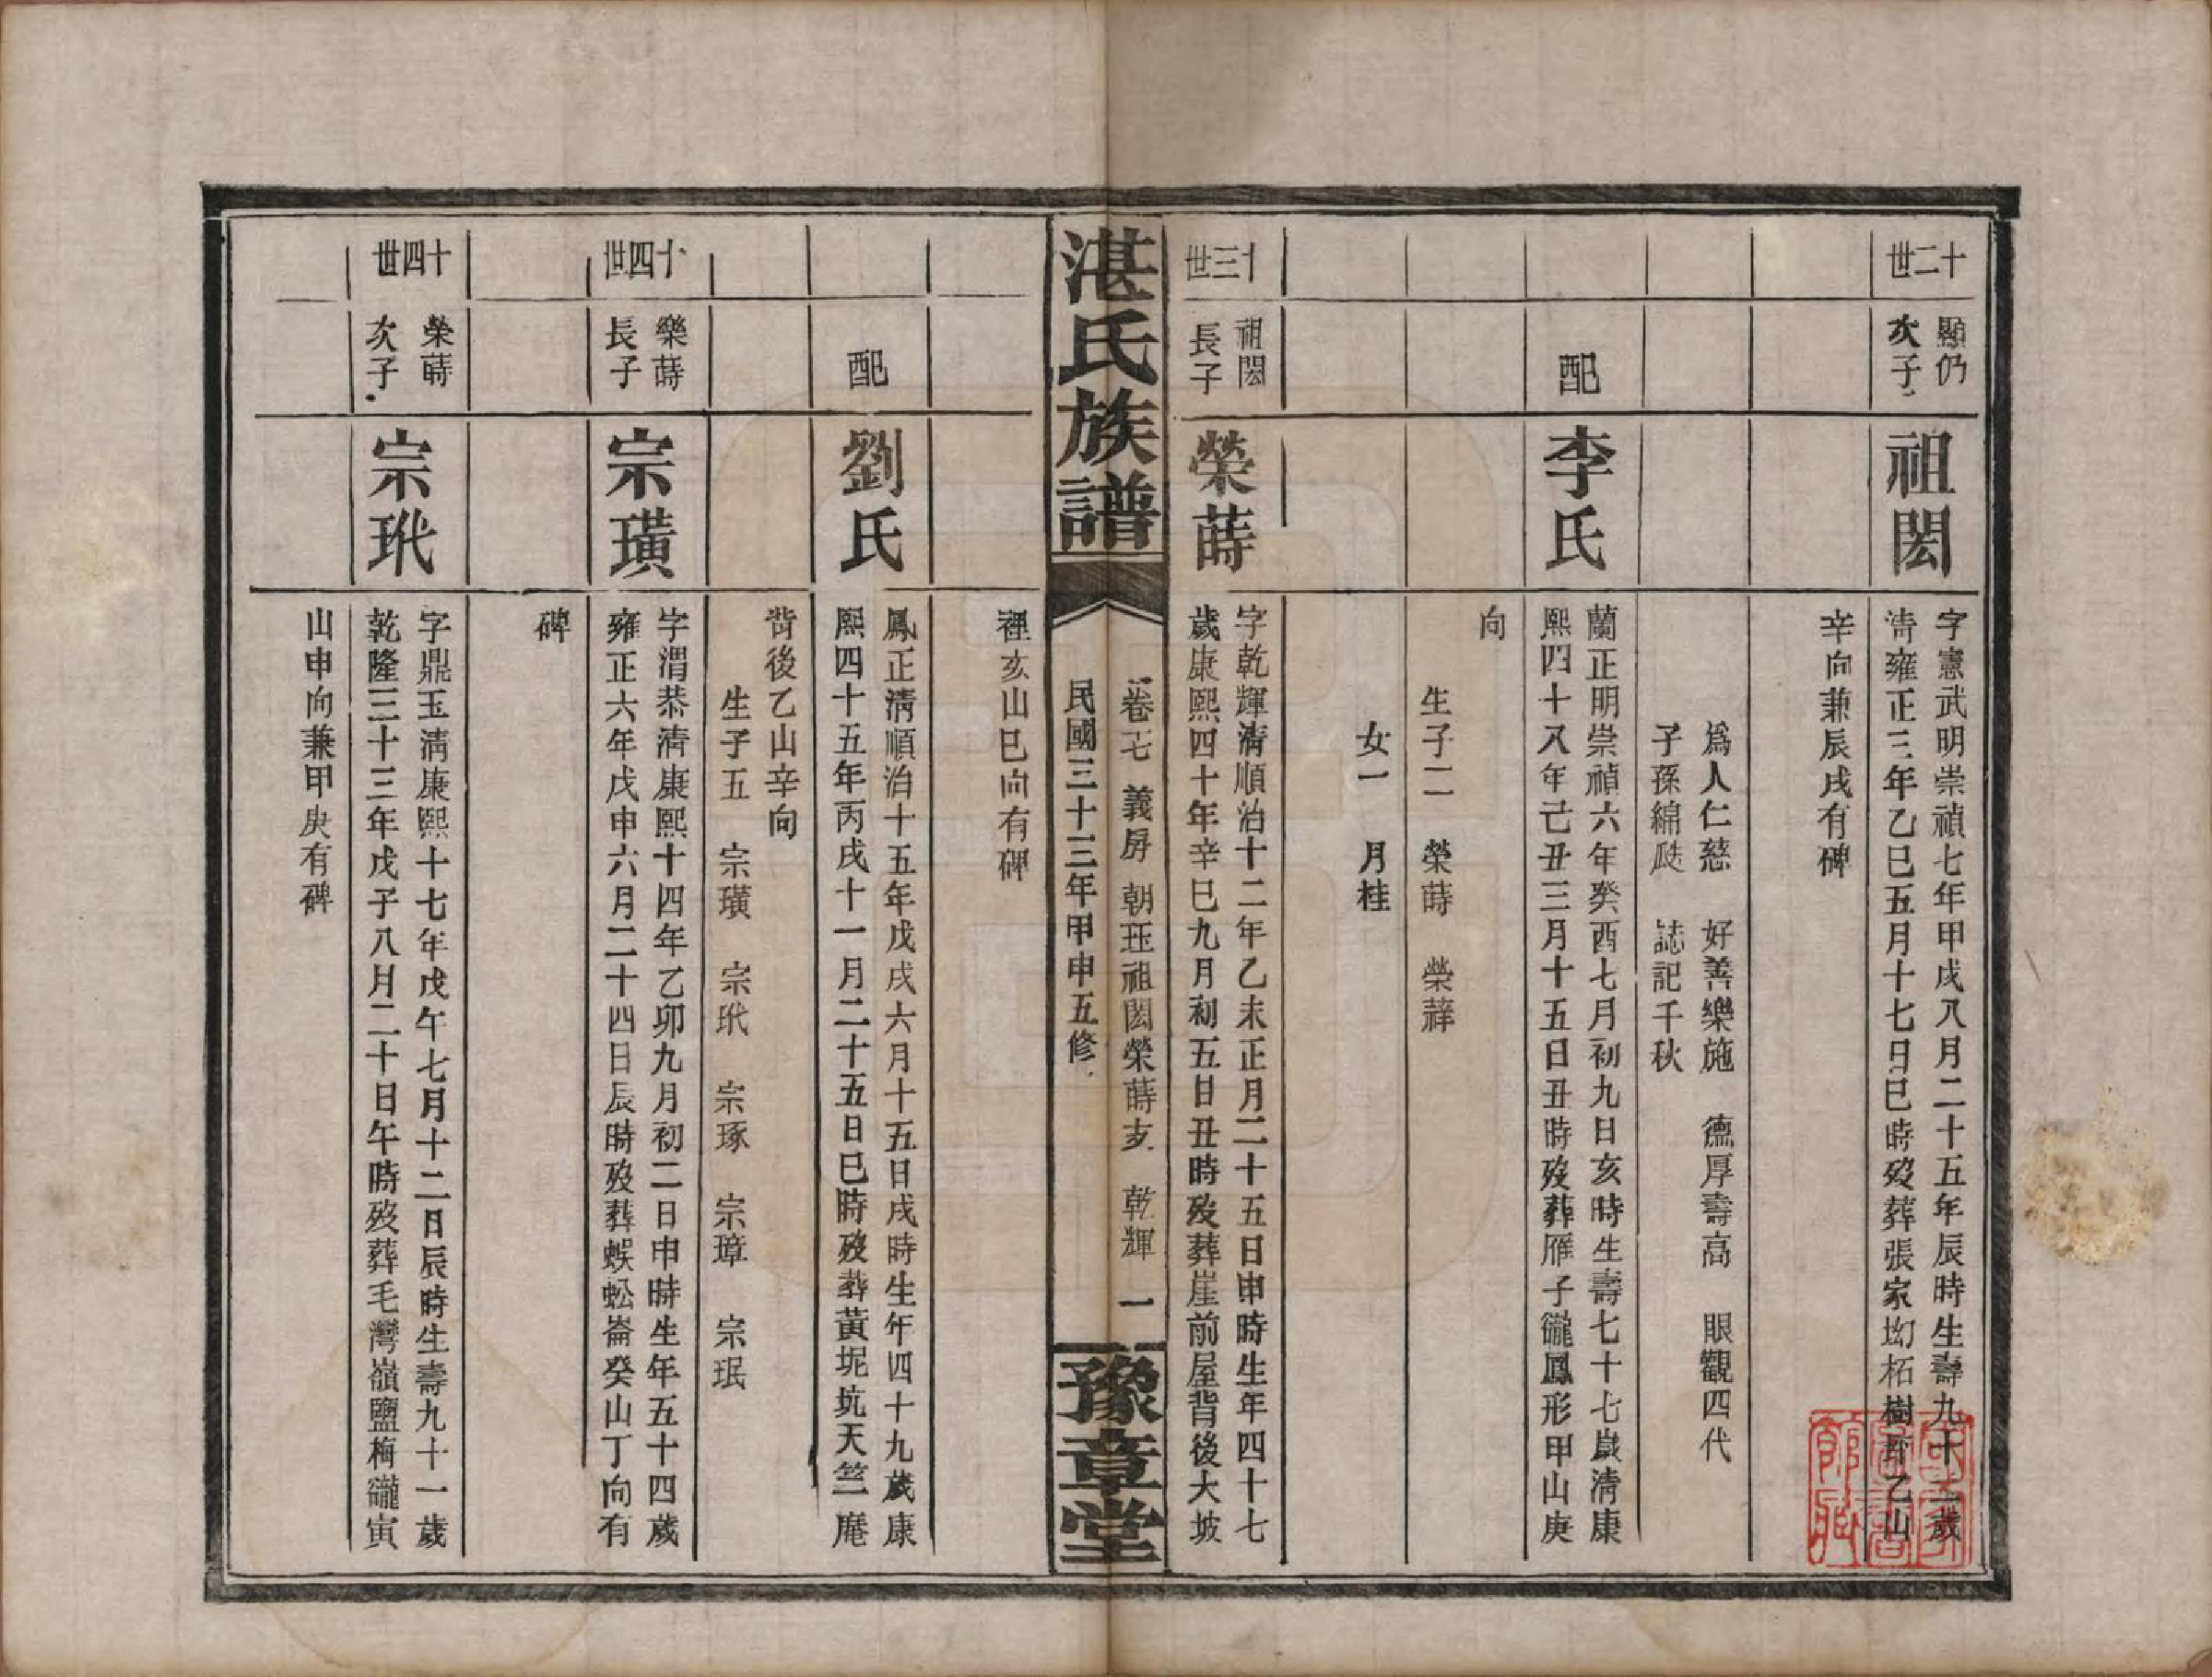 十二世
顯仍
次子
祖閎
字憲武明崇禎七年甲戌八月二十五年辰時生壽九十二歲
清雍正三年乙巳五月十七日巳時歿葬張家㘭柘樹坪乙山
辛向兼辰戌有碑
為人仁慈 好善樂施 德厚壽高 眼觀四代
子孫綿瓞 誌記千秋
配
李氏
蘭正明崇禎六年癸酉七月初九日亥時生壽七十七歲清康
熙四十八年己丑三月十五日丑時歿葬雁子巃鳳形甲山庚
向
生子二 榮蒔 榮𦽄
女一 月桂
十三世
祖閎
長子
榮蒔
字乾輝清順治十二年乙未正月二十五日申時生年四十七
歲康熙四十年辛巳九月初五日丑時歿葬崖前屋背後大坡
湛氏族譜
卷七 義房 朝珏祖閎榮蒔支 乾輝 一
民國三十三年甲申五修
豫章堂
裡亥山巳向有碑
配
劉氏
鳳正清順治十五年戊戌六月十五日戌時生年四十九歲康
熙四十五年丙戌十一月二十五日巳時歿葬黃坭坑天竺庵
背後乙山辛向
生子五 宗璜 宗玳 宗琢 宗璋 宗珉
十四世
榮蒔
長子
宗璜
字渭恭清康熙十四年乙卯九月初二日申時生年五十四歲
雍正六年戊申六月二十四日辰時歿葬蜈蚣崙癸山丁向有
碑
十四世
榮蒔
次子
宗玳
字鼎玉清康熙十七年戊午七月十二日辰時生壽九十一歲
乾隆三十三年戊子八月二十日午時歿葬毛灣嶺鹽梅巃寅
山申向兼甲庚有碑